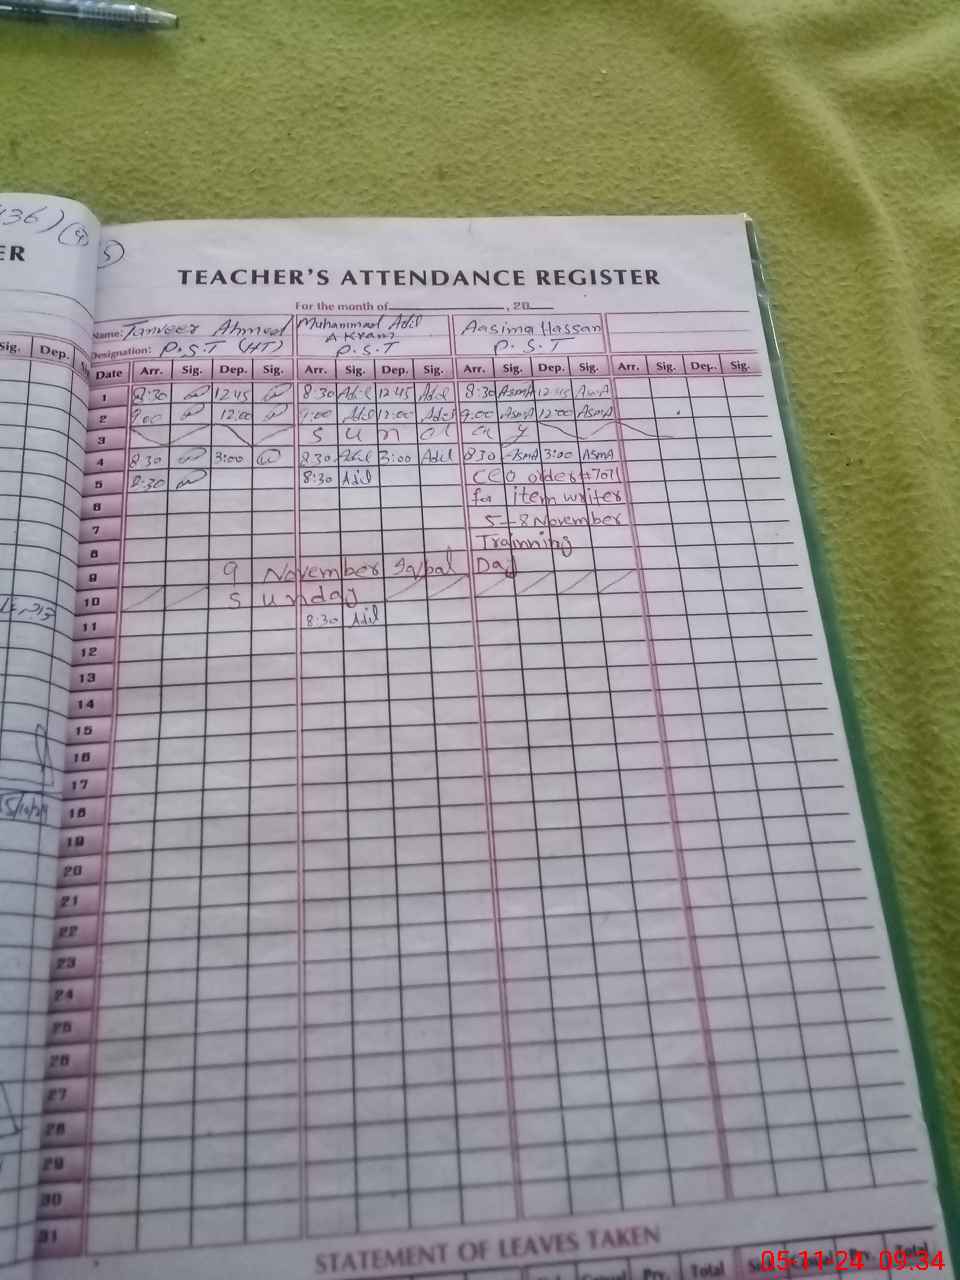 136)
ER
Sig. Dep.
5
TEACHER'S ATTENDANCE REGISTER
For the month of , 20
Name: Tanveer Ahmed Muhammad Adil Akram Aasima Hassan
Designation: P.S.T (HT) P.S.T P.S.T
Date Arr. Sig. Dep. Sig. Arr. Sig. Dep. Sig. Arr. Sig. Dep. Sig. Arr. Sig. Dep. Sig.
1 8:30 12:45 8:30 Adil 12:45 Adil 8:30 AsmA 12:45 AsmA
2 9:00 12:00 9:00 Adil 12:00 Adil 9:00 AsmA 12:00 AsmA
3 Sunday
4 8:30 3:00 8:30 Adil 3:00 Adil 8:30 AsmA 3:00 AsmA
5 8:30 8:30 Adil CEO order#
6 for item writer
7 5-8 November
8 Trainning
9 9 November Iqbal Day
10 Sunday
11 8:30 Adil
12
13
14
15
16
17
18
19
20
21
22
23
24
25
26
27
28
29
30
31
STATEMENT OF LEAVES TAKEN
Prv. Total Prv. Total
05-11-24 09:34